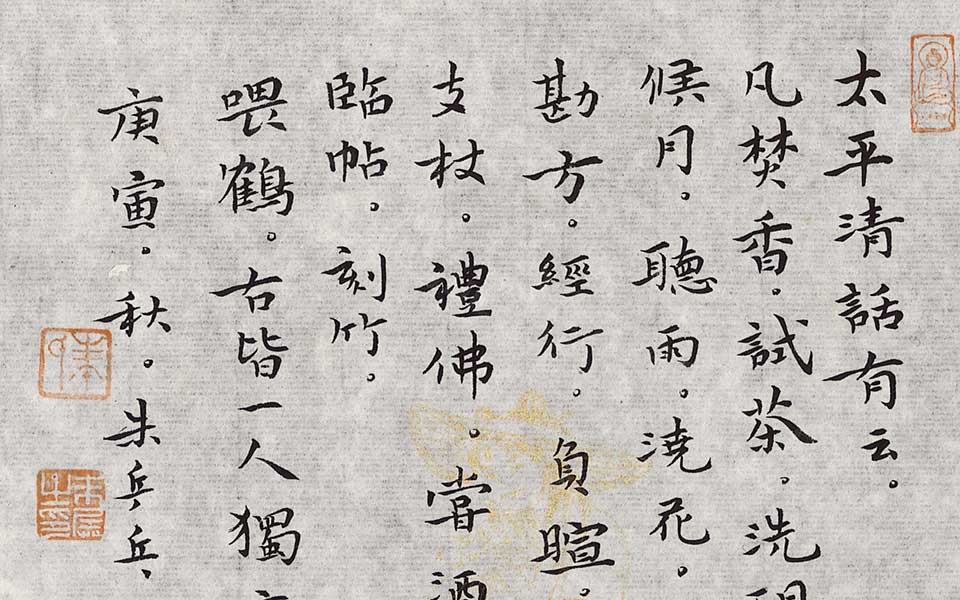 太平清話有云。
凡焚香。試茶。洗
候月。聽雨。澆花。
勘方。經行。負暄。
支杖。禮佛。嘗酒
臨帖。刻竹。
喂鶴。右皆一人獨
庚寅。秋。朱乒乓